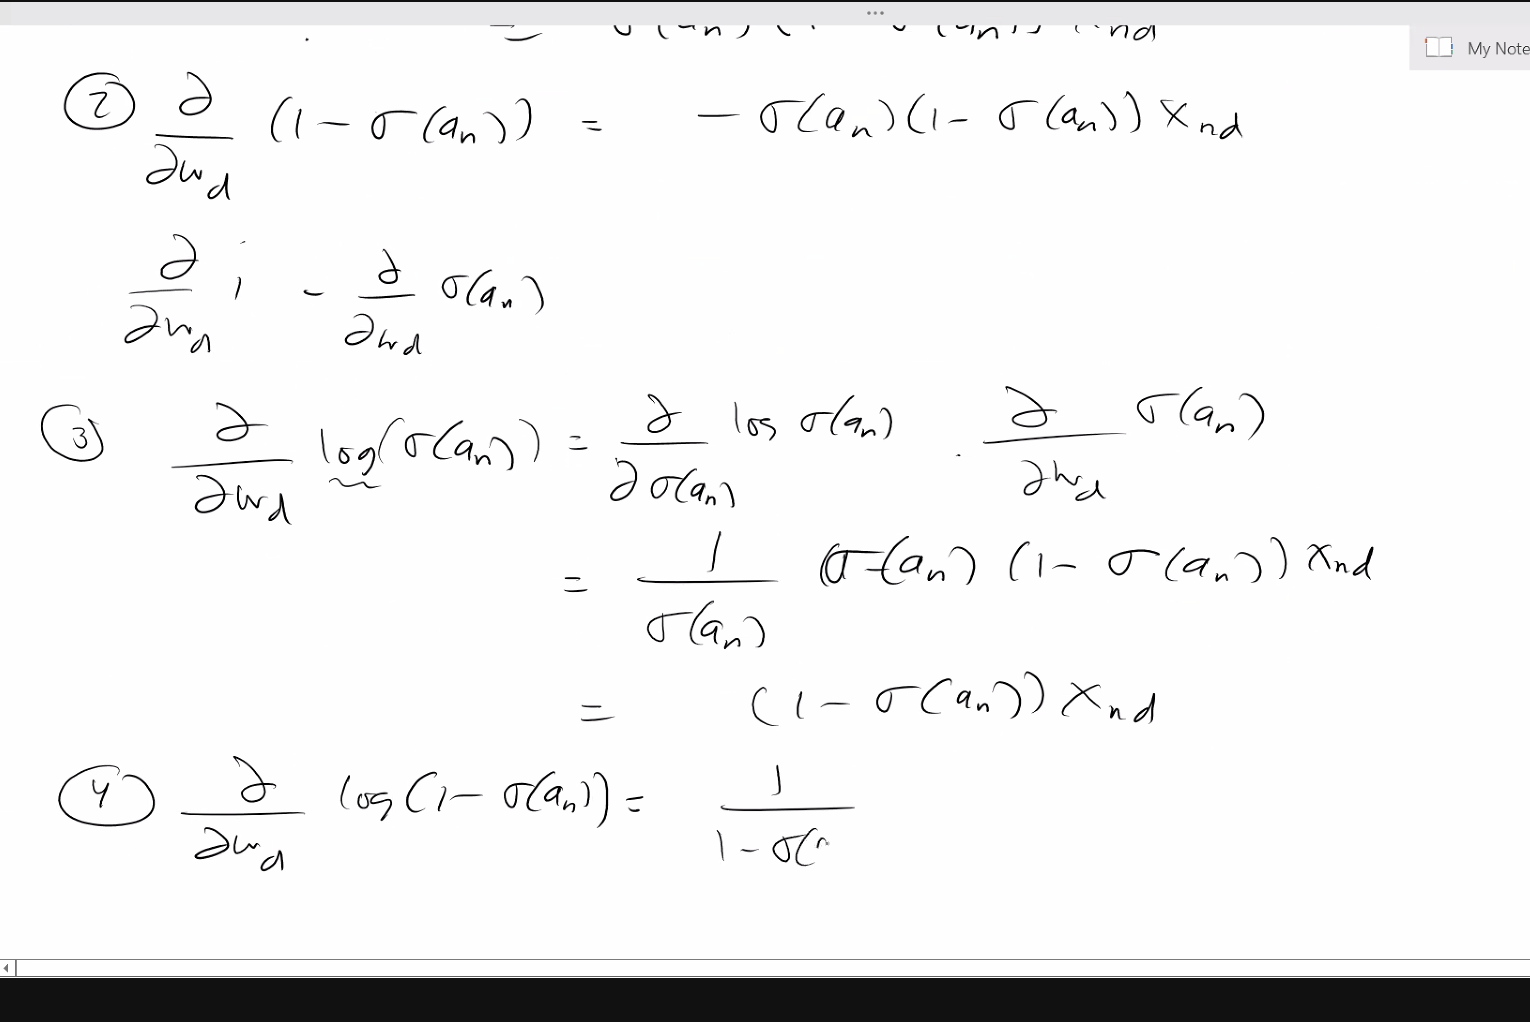 My Note
② ∂/∂w_d (1 − σ(a_n)) = − σ(a_n)(1 − σ(a_n)) x_nd
∂/∂w_d 1 − ∂/∂w_d σ(a_n)
③ ∂/∂w_d log(σ(a_n)) = ∂/∂σ(a_n) log σ(a_n) · ∂/∂w_d σ(a_n)
= 1/σ(a_n) σ(a_n) (1 − σ(a_n)) x_nd
= (1 − σ(a_n)) x_nd
④ ∂/∂w_d log(1 − σ(a_n)) = 1/1 − σ(